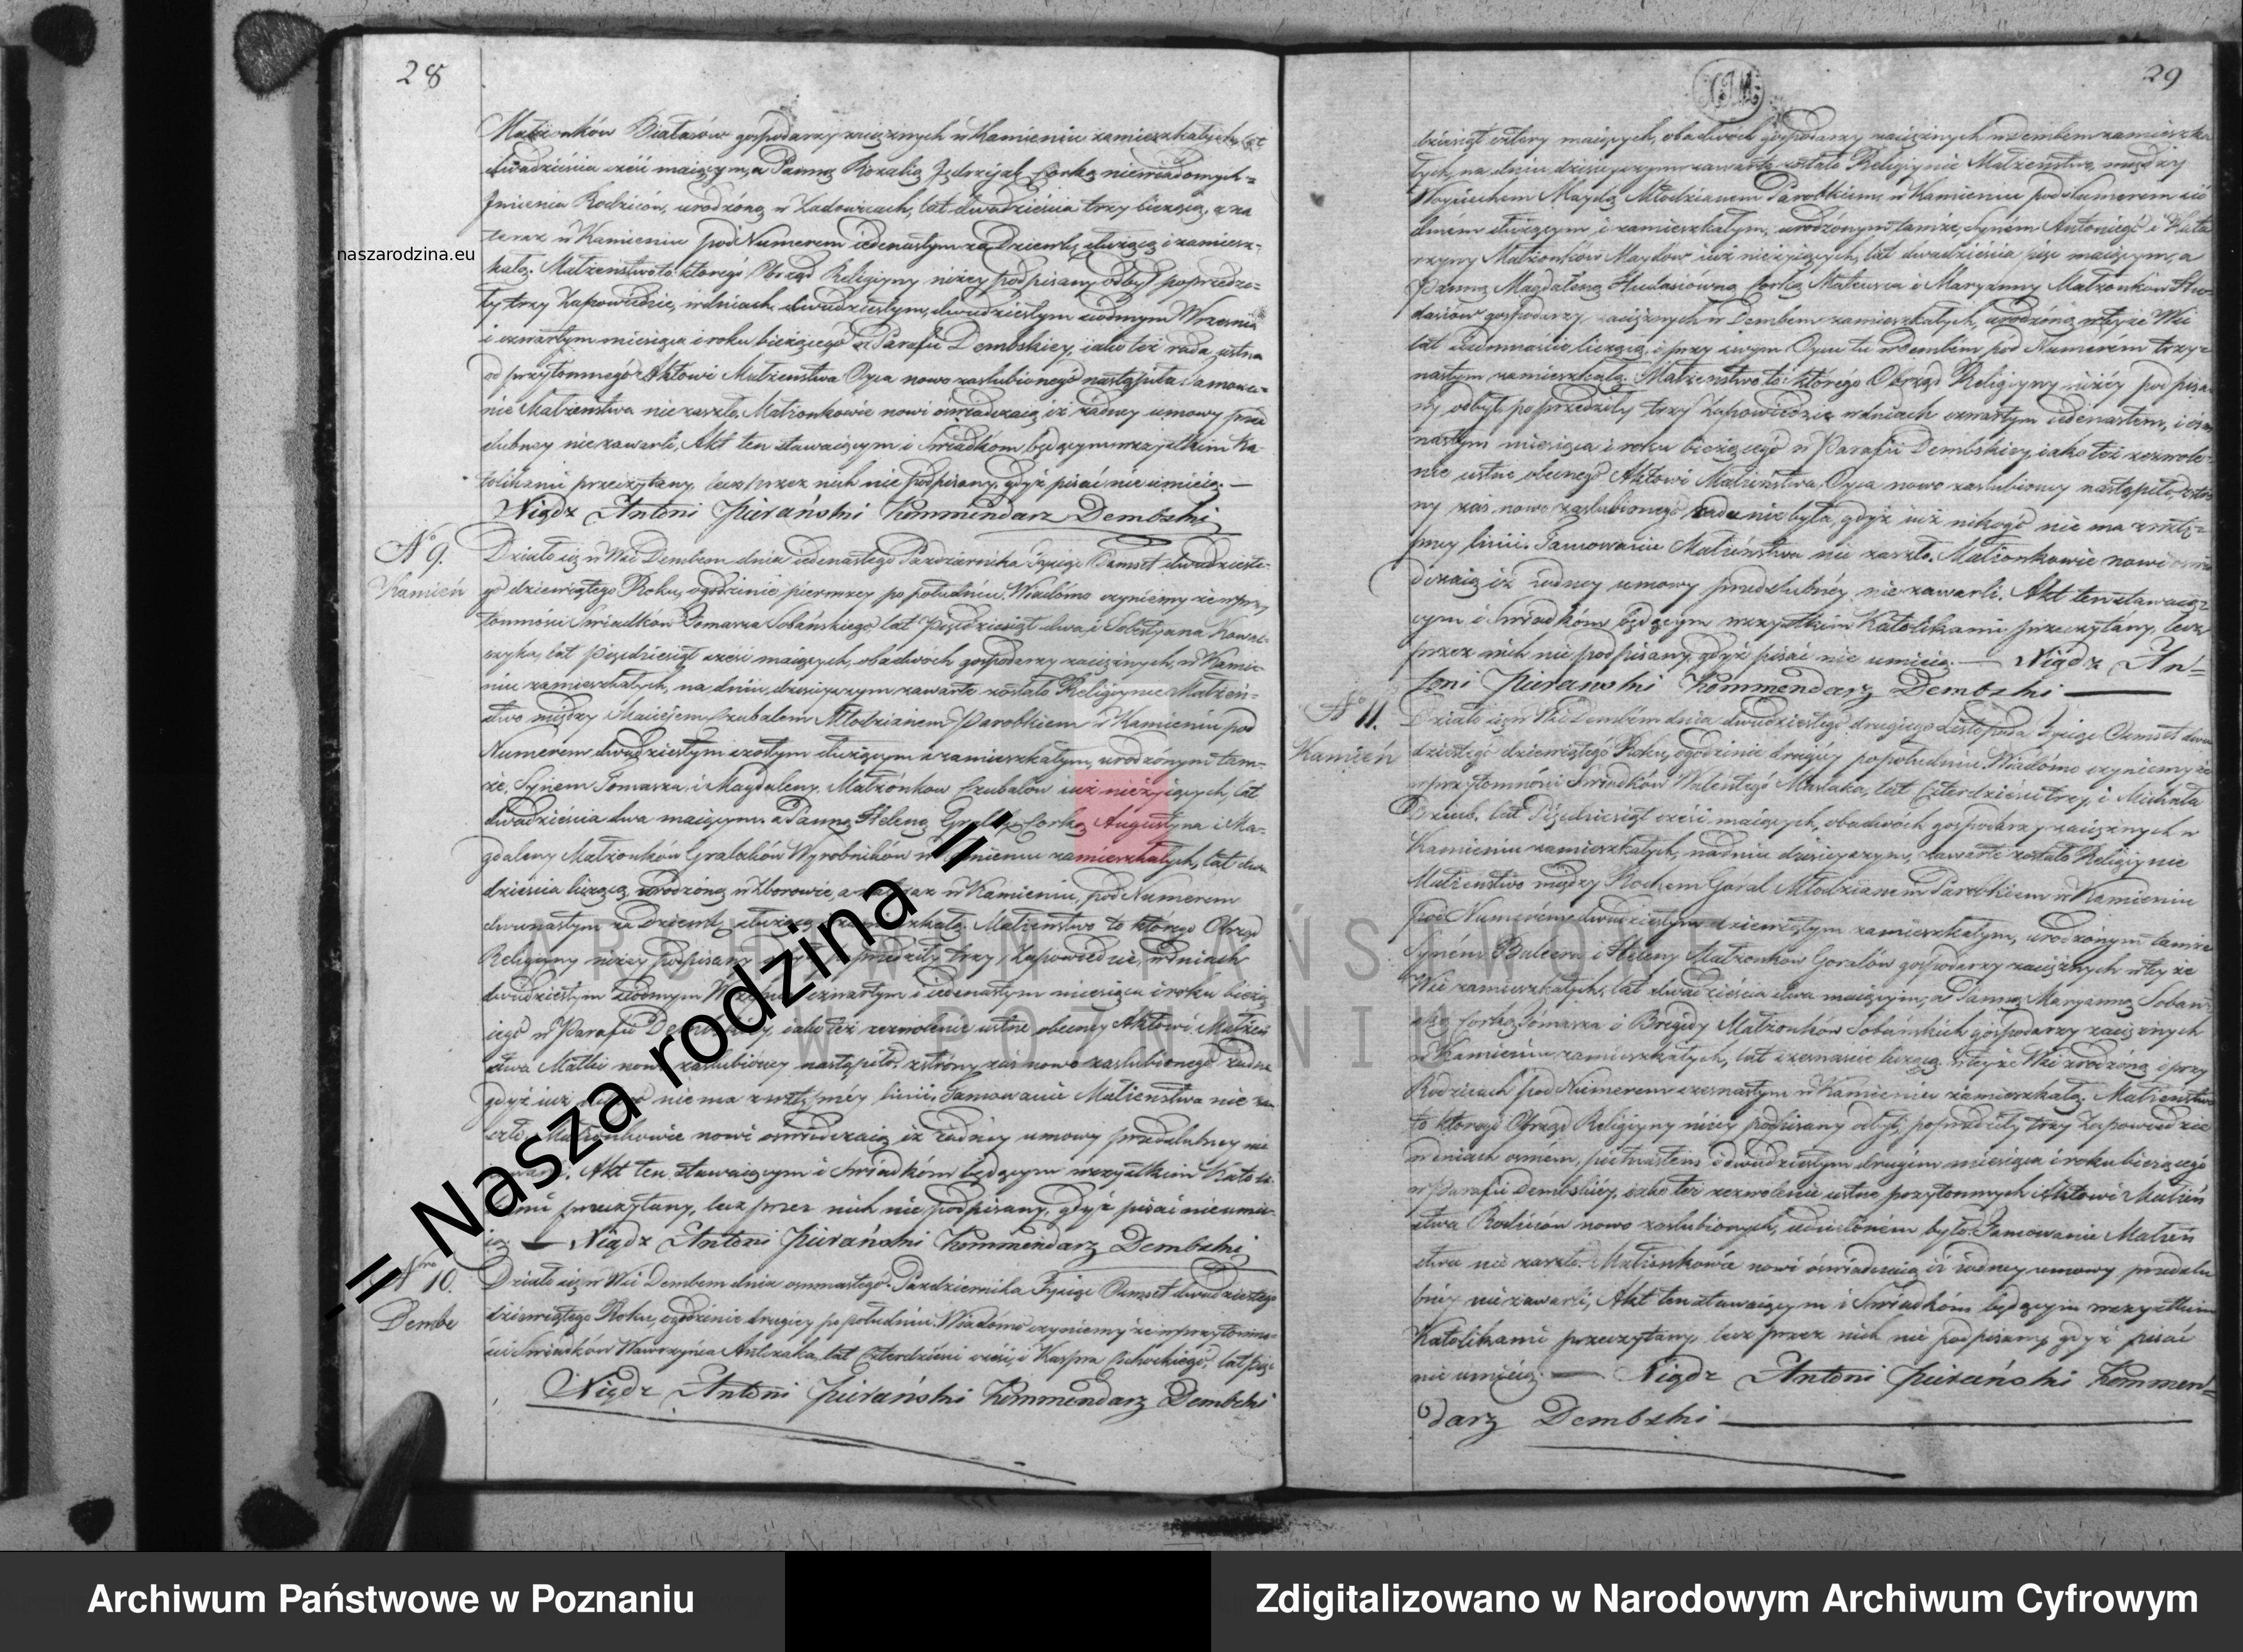 28
Małżonków Białasów gospodarzy zaciężnych w Kamieniu zamieszkałych, lat
dwadzieścia sześć maiącym, a Panną Rozalią Jędrzejak Corką niewiadomych
Jmienia Rodziców, urodzoną w Zadowicach, lat dwadzieścia trzy liczącą, a na
teraz w Kamieniu pod Numerem iedenastym za Dziewkę służącą i zamiesz-
kałą. Małżeństwo to którego Obrząd Religiyny niżey podpisany odbył poprzedzi-
ły trzy Zapowiedzie, w dniach dwudziestym, dwudziestym siódmym Września
i czwartym miesiąca i roku bieżącego w Parafii Dembskiey, iako też rada ustna
od przytomnego Aktowi Małżeństwa Oyca nowo zaslubionego nastąpiła. Tamowa-
nie Małżeństwa nie zaszło. Małżonkowie nowi oświadczaią iż żadney umowy przed
slubney nie zawarli, Akt ten stawaiącym i Swiadkom będącym wszystkim Ka-
tolikami przeczytany, lecz przez nich nie podpisany, gdyż pisać nie umieią. —
Xiądz Antoni Kommendarz Dembski
No 9.
Kamień
Działo się w Wsi Dembem dnia iedenastego Pazdziernika Tysiąc Osmset dwudzieste-
go dziewiątego Roku, o godzinie pierwszey po południu. Wiadomo czyniemy że w przy
tomności Swiadków Tomasza Sobańskiego, lat Pięćdziesiąt dwa i Sobestyana Kowal-
czyka, lat Pięćdziesiąt sześć maiących, obadwóch gospodarzy zaciężnych, w Kamie-
niu zamieszkałych, na dniu dzisieyszym zawarte zostało Religiynie Małżeń-
stwo między Macieiem Czubałem Młodzianem Parobkiem w Kamieniu pod
Numerem dwudziestym szostym służącym i zamieszkałym, urodzonym tam-
że, Synem Tomasza i Magdaleny Małżonkow Czubałow iuż nieżyiących, lat
dwadzieścia dwa maiącym, a Panną Heleną Corką Augustyna i Ma-
gdaleny Małżonków Gralaków Wyrobników w Kamieniu zamieszkałych, lat dwa
dzieścia liczącą urodzoną w Zborowie, a na teraz w Kamieniu, pod Numerem
dwunastym za Dziewkę służącą i zamieszkałą. Małżeństwo to którego Obrząd
Religiyny niżey podpisany odbył poprzedziły trzy Zapowiedzie, w dniach
dwudziestym siódmym Września czwartym i iedenastym miesiąca i roku bieżą
cego w Parafii Dembskiey, iako też zezwolenie ustne obecney Aktowi Małżeń
stwa Matki nowo zaslubioney nastąpiło, z strony zaś nowo zaslubionego żadne
gdyż iuż nikogo nie ma z wstępney linii. Tamowanie Małżeństwa nie za-
szło. Małżonkowie nowi oświadczaią iż żadney umowy przedslubney nie
zawarli. Akt ten stawaiącym i Swiadkom będącym wszystkim Katoli-
kami przeczytany, lecz przez nich nie podpisany, gdyż pisać nie umie-
ią. — Xiądz Antoni Kommendarz Dembski
Nro 10.
Dembe
Działo się w Wsi Dembem dnia osmnastego Pazdziernika Tysiąc Osmset dwudziestego
dziewiątego Roku, o godzinie drugiey po południu. Wiadomo czyniemy że w przytomno-
ści Swiadków Wawrzyńca Antczaka, lat Czterdzieści sześć, i Kaspra Cichockiego, lat pięć
Xiądz Antoni Kommendarz Dembski
29
dziesiąt cztery maiących, obadwóch gospodarzy zaciężnych w Dembem zamieszka
łych, na dniu dzisieyszym zawarte zostało Religiynie Małżeństwo, między
Woyciechem Maydą Młodzianem Parobkiem, w Kamieniu pod Numerem sió
dmem służącym i zamieszkałym, urodzonym tamże, Synem Antoniego i Kata
rzyny Małżonków Maydow iuż nieżyiących, lat dwadzieścia pięć maiącym, a
Panną Magdaleną Corką Mateusza i Maryanny Małżonków
gospodarzy zaciężnych w Dembem zamieszkałych, urodzoną w teyże Wsi
lat siedmnaście liczącą, i przy swym Oycu tu w Dembem pod Numerem trzy-
nastym zamieszkałą. Małżeństwo to którego Obrząd Religiyny niżey podpisa-
ny odbył, poprzedziły trzy Zapowiedzie w dniach czwartym iedenastem, i osm
nastym miesiąca i roku bieżącego w Parafii Dembskiey, iako też zezwole-
nie ustne obecnego Aktowi Małżeństwa, Oyca nowo zaslubioney nastąpiło, z stro
ny zaś nowo zaslubionego rada nie była, gdyż iuż nikogo nie ma z wstę-
pney linii. Tamowanie Małżeństwa nie zaszło. Małżonkowie nowi oświa
dczaią iż żadney umowy przedslubney nie zawarli. Akt ten stawaią-
cym i Swiadkom będącym wszystkim Katolikami przeczytany, lecz
przez nich nie podpisany, gdyż pisać nie umieią. — Xiądz An-
toni Kommendarz Dembski —
No 11.
Kamień
Działo się w Wsi Dembem dnia dwudziestego drugiego Listopada Tysiąc Osmset dwu
dziestego dziewiątego Roku, o godzinie drugiey po południu. Wiadomo czyniemy że
w przytomności Swiadków Walentego Maślaka, lat Czterdzieści trzy, i Michała
lat Pięćdziesiąt sześć maiących, obadwóch gospodarzy zaciężnych w
Kamieniu zamieszkałych, na dniu dzisieyszym, zawarte zostało Religiynie
Małżeństwo między Rochem Goral Młodzianem Parobkiem w Kamieniu
pod Numerem dwudziestym dziewiątym zamieszkałym, urodzonym tamże
Synem i Heleny Małżonków Goralów gospodarzy zaciężnych w teyże
Wsi zamieszkałych, lat dwadzieścia dwa maiącym, a Panną Maryanną Sobań-
ską Corką Tomasza i Brygidy Małżonków Sobańskich gospodarzy zaciężnych
w Kamieniu zamieszkałych, lat szesnaście liczącą w teyże Wsi zrodzoną i przy
Rodzicach pod Numerem szesnastym w Kamieniu zamieszkałą. Małżeństwo
to którego Obrząd Religiyny niżey podpisany odbył, poprzedziły trzy Zapowiedzie
w dniach osmem, piętnastem i dwudziestym drugim miesiąca i roku bieżącego
w Parafii Dembskiey, iako też zezwolenie ustne przytomnych Aktowi Małżeń
stwa Rodziców nowo zaslubionych, udzielonem było. Tamowanie Małżeń
stwa nie zaszło. Małżonkowie nowi oświadczaią iż żadney umowy przedslu
bney nie zawarli, Akt ten stawaiącym i Swiadkom będącym wszystkim
Katolikami przeczytany, lecz przez nich nie podpisany, gdyż pisać
nie umieią. — Xiądz Antoni Kommen-
darz Dembski —
naszarodzina.eu
-= Nasza rodzina =-
ARCHIWUM PAŃSTWOWE
W POZNANIU
Archiwum Państwowe w Poznaniu
Zdigitalizowano w Narodowym Archiwum Cyfrowym